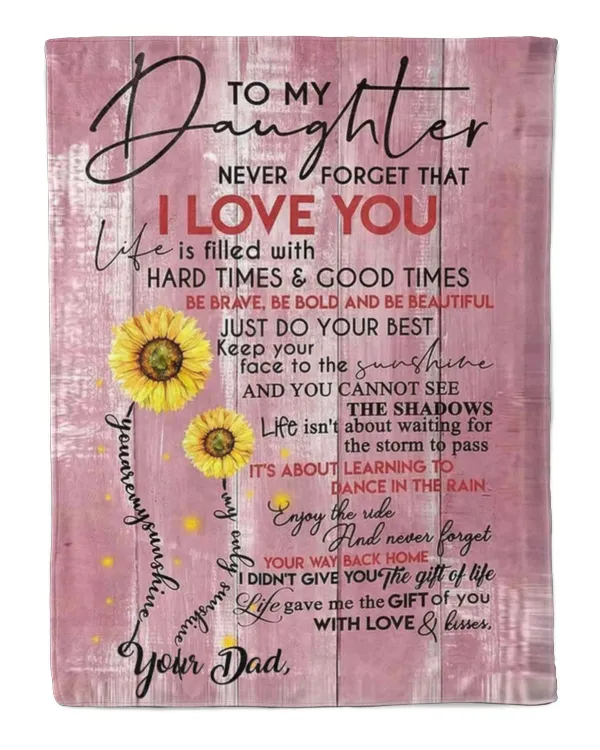 TO MY
Daughter
NEVER FORGET THAT
I LOVE YOU
Life is filled with
HARD TIMES & GOOD TIMES
BE BRAVE, BE BOLD AND BE BEAUTIFUL
JUST DO YOUR BEST
Keep your
face to the sunshine
AND YOU CANNOT SEE
THE SHADOWS
Life isn't about waiting for
the storm to pass
IT'S ABOUT LEARNING TO
DANCE IN THE RAIN
Enjoy the ride
And never forget
YOUR WAY BACK HOME
I DIDN'T GIVE YOU The gift of life
Life gave me the GIFT OF you
WITH LOVE & kisses,
youaremysunshine
my only sunshine
Your Dad,